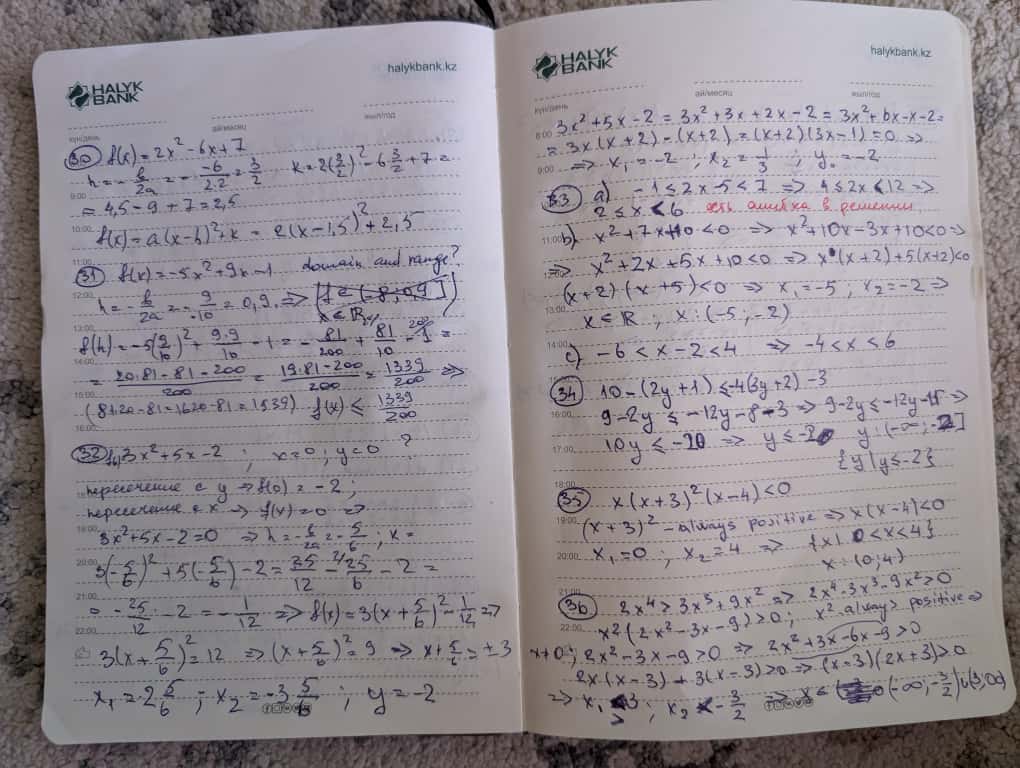 HALYK
BANK
halykbank.kz
күн/день
ай/месяц
жыл/год
30 f(x) = 2x² - 6x + 7
h = -b/2a = - -6/2·2 = 3/2 k = 2(3/2)² - 6 3/2 + 7 =
9:00
= 4,5 - 9 + 7 = 2,5
10:00
f(x) = a(x-h)² + k = 2(x-1,5)² + 2,5
11:00
31 f(x) = -5x² + 9x - 1 domain and range?
12:00
h = -b/2a = - 9/-10 = 0,9. =>
x ∈ R
13:00
f(h) = -5(9/10)² + 9·9/10 - 1 = - 81/200 + 81/10 - 1 =
14:00
= 20·81 - 81 - 200/200 = 19·81 - 200/200 = 1339/200 =>
15:00
(81·20 - 81 = 1620 - 81 = 1539) f(x) ≤ 1339/200
16:00
32 3x² + 5x - 2 ; x = 0 ; y = 0 ?
пересечение с y -> f(0) = -2 ;
18:00
пересечение с x -> f(x) = 0 =>
19:00
3x² + 5x - 2 = 0 => h = -b/2a = -5/6 ; k =
20:00
3(-5/6)² + 5(-5/6) - 2 = 25/12 - 25/6 - 2 =
21:00
- 25/12 - 2 = - 1/12 => f(x) = 3(x + 5/6)² - 1/12 =>
22:00
3(x + 5/6)² = 12 => (x + 5/6)² = 9 => x + 5/6 = ±3
x₁ = 2 5/6 ; x₂ = -3 5/6 ; y = -2
HALYK
BANK
halykbank.kz
күн/день
ай/месяц
жыл/год
8:00
3x² + 5x - 2 = 3x² + 3x + 2x - 2 = 3x² + 6x - x - 2 =
= 3x(x+2) - (x+2) = (x+2)(3x-1) = 0 =>
9:00
=> x₁ = -2 ; x₂ = 1/3 ; y₀ = -2
33 a) -1 ≤ 2x - 5 < 7 => 4 ≤ 2x < 12 =>
2 ≤ x < 6 есть ошибка в решении
11:00
b) x² + 7x + 10 < 0 => x² + 10x - 3x + 10 < 0 =>
=> x² + 2x + 5x + 10 < 0 => x (x+2) + 5(x+2) < 0
(x+2)(x+5) < 0 => x₁ = -5 ; x₂ = -2 =>
13:00
x ∈ R ; x : (-5 ; -2)
14:00
c) -6 < x - 2 < 4 => -4 < x < 6
34 10 - (2y+1) ≤ -4(3y+2) - 3
16:00
9 - 2y ≤ -12y - 8 - 3 => 9 - 2y ≤ -12y - 11 =>
17:00
10y ≤ -20 => y ≤ -2 y : (-∞ ; -2]
{y | y ≤ -2}
18:00
35 x(x+3)²(x-4) < 0
19:00
(x+3)² - always positive => x(x-4) < 0
20:00
x₁ = 0 ; x₂ = 4 => {x | 0 < x < 4}
x : (0 ; 4)
21:00
36 2x⁴ > 3x³ + 9x² => 2x⁴ - 3x³ - 9x² > 0
22:00
x²(2x² - 3x - 9) > 0 ; x² always positive =>
x ≠ 0 ; 2x² - 3x - 9 > 0 => 2x² + 3x - 6x - 9 > 0
2x(x-3) + 3(x-3) > 0 => (x-3)(2x+3) > 0
=> x₁ > 3 ; x₂ < -3/2 => x ∈ (-∞ ; -3/2) ∪ (3, ∞)